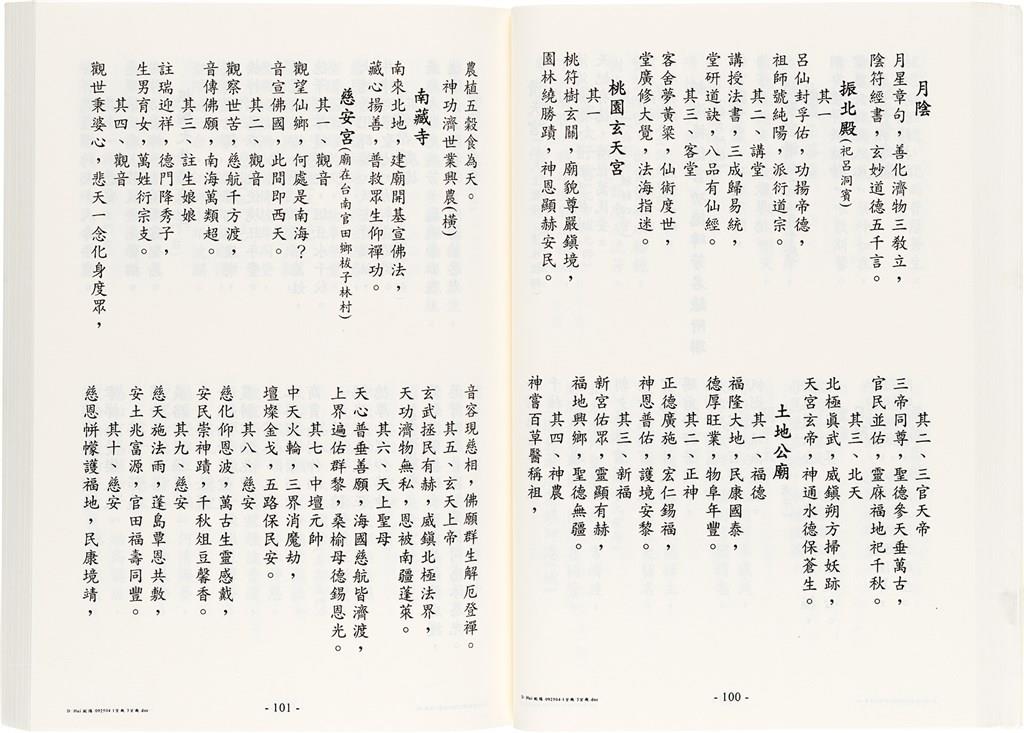 月陰
月星章句，善化濟物三教立，
陰符經書，玄妙道德五千言。
振北殿(祀呂洞賓)
其一
呂仙封孚佑，功揚帝德，
祖師號純陽，派衍道宗。
其二、講堂
講授法書，三成歸易統，
堂研道訣，八品有仙經。
其三、客堂
客舍夢黃粱，仙術度世，
堂廣修大覺，法海指迷。
桃園玄天宮
其一
桃符樹玄關，廟貌尊嚴鎮境，
園林繞勝蹟，神恩顯赫安民。
其二、三官天帝
三帝同尊，聖德參天垂萬古，
官民並佑，靈庥福地祀千秋。
其三、北天
北極真武，威鎮朔方掃妖跡，
天宮玄帝，神通水德保蒼生。
土地公廟
其一、福德
福隆大地，民康國泰，
德厚旺業，物阜年豐。
其二、正神
正德廣施，宏仁錫福，
神恩普佑，護境安黎。
其三、新福
新宮佑眾，靈顯有赫，
福地興鄉，聖德無疆。
其四、神農
神嘗百草醫稱祖，
- 100 -
農植五穀食為天。
神功濟世業興農(橫)
南藏寺
南來北地，建廟開基宣佛法，
藏心揚善，普救眾生仰禪功。
慈安宮(廟在台南官田鄉拔子林村)
其一、觀音
觀望仙鄉，何處是南海？
音宣佛國，此間即西天。
其二、觀音
觀察世苦，慈航千方渡，
音傳佛願，南海萬類超。
其三、註生娘娘
註瑞迎祥，德門降秀子，
生男育女，萬姓衍宗支。
其四、觀音
觀世秉婆心，悲天一念化身度眾，
音容現慈相，佛願群生解厄登禪。
其五、玄天上帝
玄武拯民有赫，威鎮北極法界，
天功濟物無私，恩被南疆蓬萊。
其六、天上聖母
天心普垂善願，海國慈航皆濟渡，
上界遍佑群黎，桑榆母德錫恩光。
其七、中壇元帥
中天火輪，三界消魔劫，
壇燦金戈，五路保民安。
其八、慈安
慈化仰恩波，萬古生靈感戴，
安民崇神蹟，千秋俎豆馨香。
其九、慈安
慈天施法雨，蓬島覃恩共敷，
安土兆富源，官田福壽同豐。
其十、慈安
慈恩帡幪護福地，民康境靖，
- 101 -